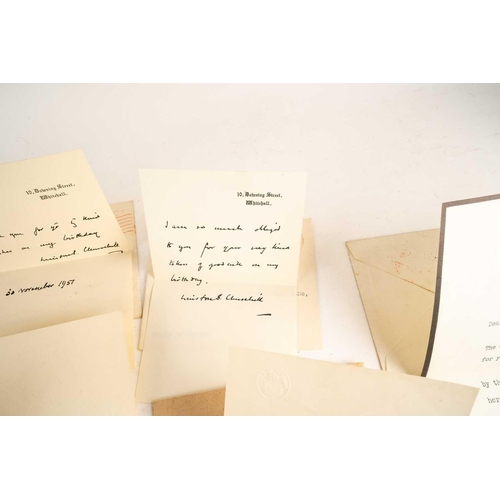 10, Downing Street,
Whitehall.
you for yr kind
on my birthday
Winston S. Churchill
30 November 1951
10, Downing Street,
Whitehall.
I am so much obliged
to you for your very kind
token of goodwill on my
birthday.
Winston S. Churchill
The
for
by th
her